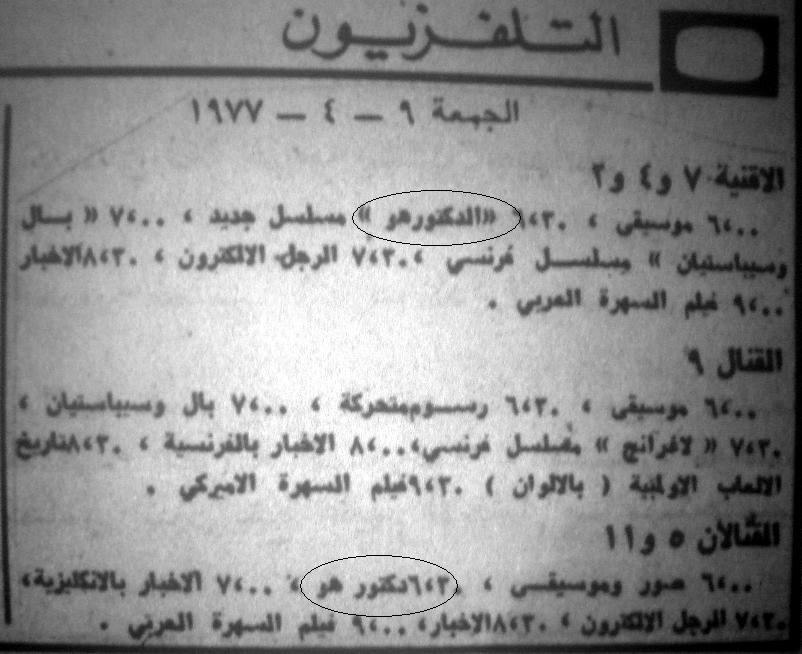 التلفزيون
الجمعة ٩ — ٤ — ١٩٧٧
الاقنية ٧ و٤ و٢
٦،٠٠ موسيقى ، ٦،٣٠ «الدكتورهو » مسلسل جديد ، ٧،٠٠ « بال
وسيباستيان » مسلسل فرنسي ، ٧،٣٠ الرجل الالكترون ، ٨،٣٠الاخبار
٩،٠٠ فيلم السهرة العربي .
القنال ٩
٦،٠٠ موسيقى ، ٦،٣٠ رسوم‌متحركة ، ٧،٠٠ بال وسيباستيان ،
٧،٣٠ « لاغرانج » مسلسل فرنسي، ٨،٠٠ الاخبار بالفرنسية ، ٨،٣٠تاريخ
الالعاب الاولمبية ( بالالوان ) ٩،٣٠فيلم السهرة الاميركي .
القنالان ٥ و١١
٦،٠٠ صور وموسيقى ، ٦،٣٠دكتور هو ، ٧،٠٠ الاخبار بالانكليزية،
٧،٣٠ الرجل الالكترون ، ٨،٣٠الاخبار، ٩،٠٠ فيلم السهرة العربي .